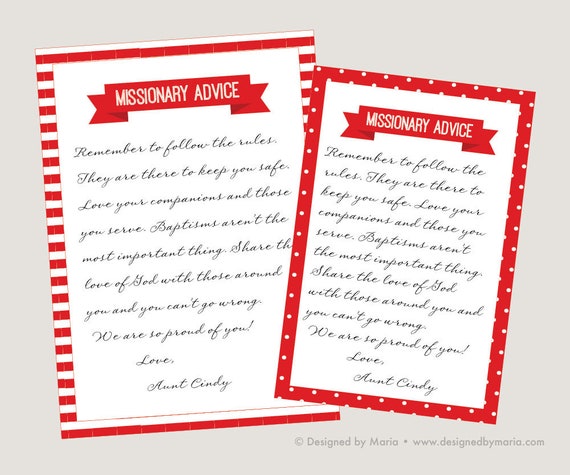 MISSIONARY ADVICE
Remember to follow the rules.
They are there to keep you safe.
Love your companions and those
you serve. Baptisms aren't the
most important thing. Share the
love of God with those around
you and you can't go wrong.
We are so proud of you!
Love,
Aunt Cindy
MISSIONARY ADVICE
Remember to follow the
rules. They are there to
keep you safe. Love your
companions and those you
serve. Baptisms aren't
the most important thing.
Share the love of God
with those around you and
you can't go wrong.
We are so proud of you!
Love,
Aunt Cindy
© Designed by Maria • www.designedbymaria.com